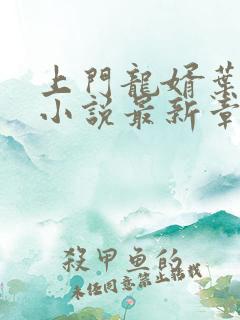 上門龍婿葉
小说最新章
殺甲鱼的
未经同意禁止转载